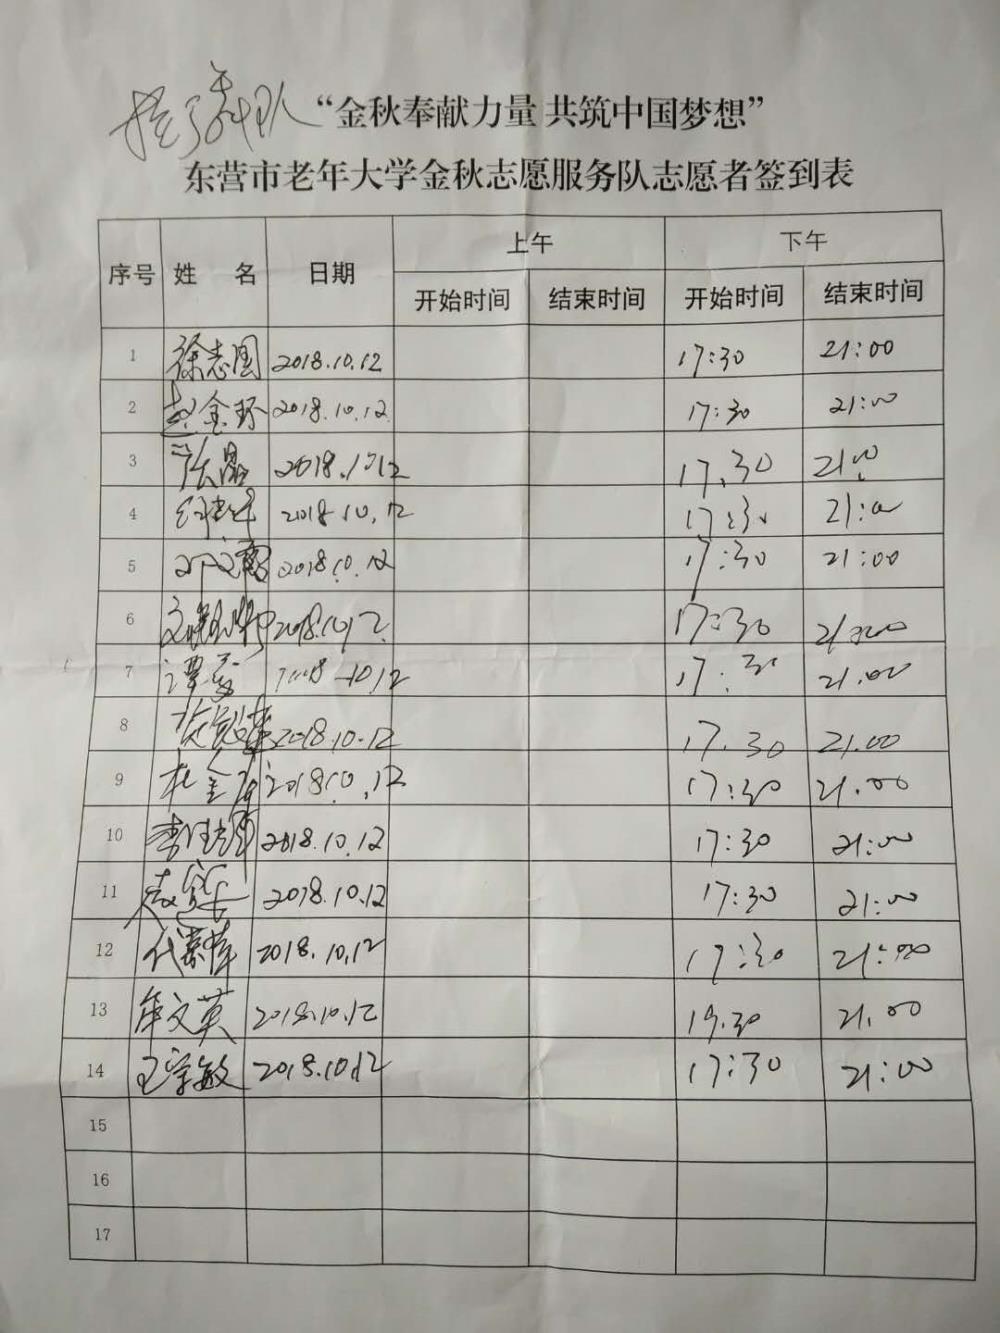 “金秋奉献力量 共筑中国梦想”
东营市老年大学金秋志愿服务队志愿者签到表
序号 姓 名 日期 上午 下午
开始时间 结束时间 开始时间 结束时间
1 徐志国 2018.10.12 17:30 21:00
2 赵金环 2018.10.12 17:30 21:00
3 张晶 2018.10.12 17.30 21:00
4 2018.10.12 17:30 21:00
5 2018.10.12 17:30 21:00
6 2018.10.12 17:30 21:00
7 谭 2018.10.12 17:30 21.00
8 2018.10.12 17.30 21.00
9 杜金 2018.10.12 17:30 21.00
10 李 2018.10.12 17:30 21:00
11 2018.10.12 17:30 21:00
12 代 2018.10.12 17:30 21:00
13 牟文英 2018.10.12 19.30 21.00
14 王学敏 2018.10.12 17:30 21:00
15
16
17